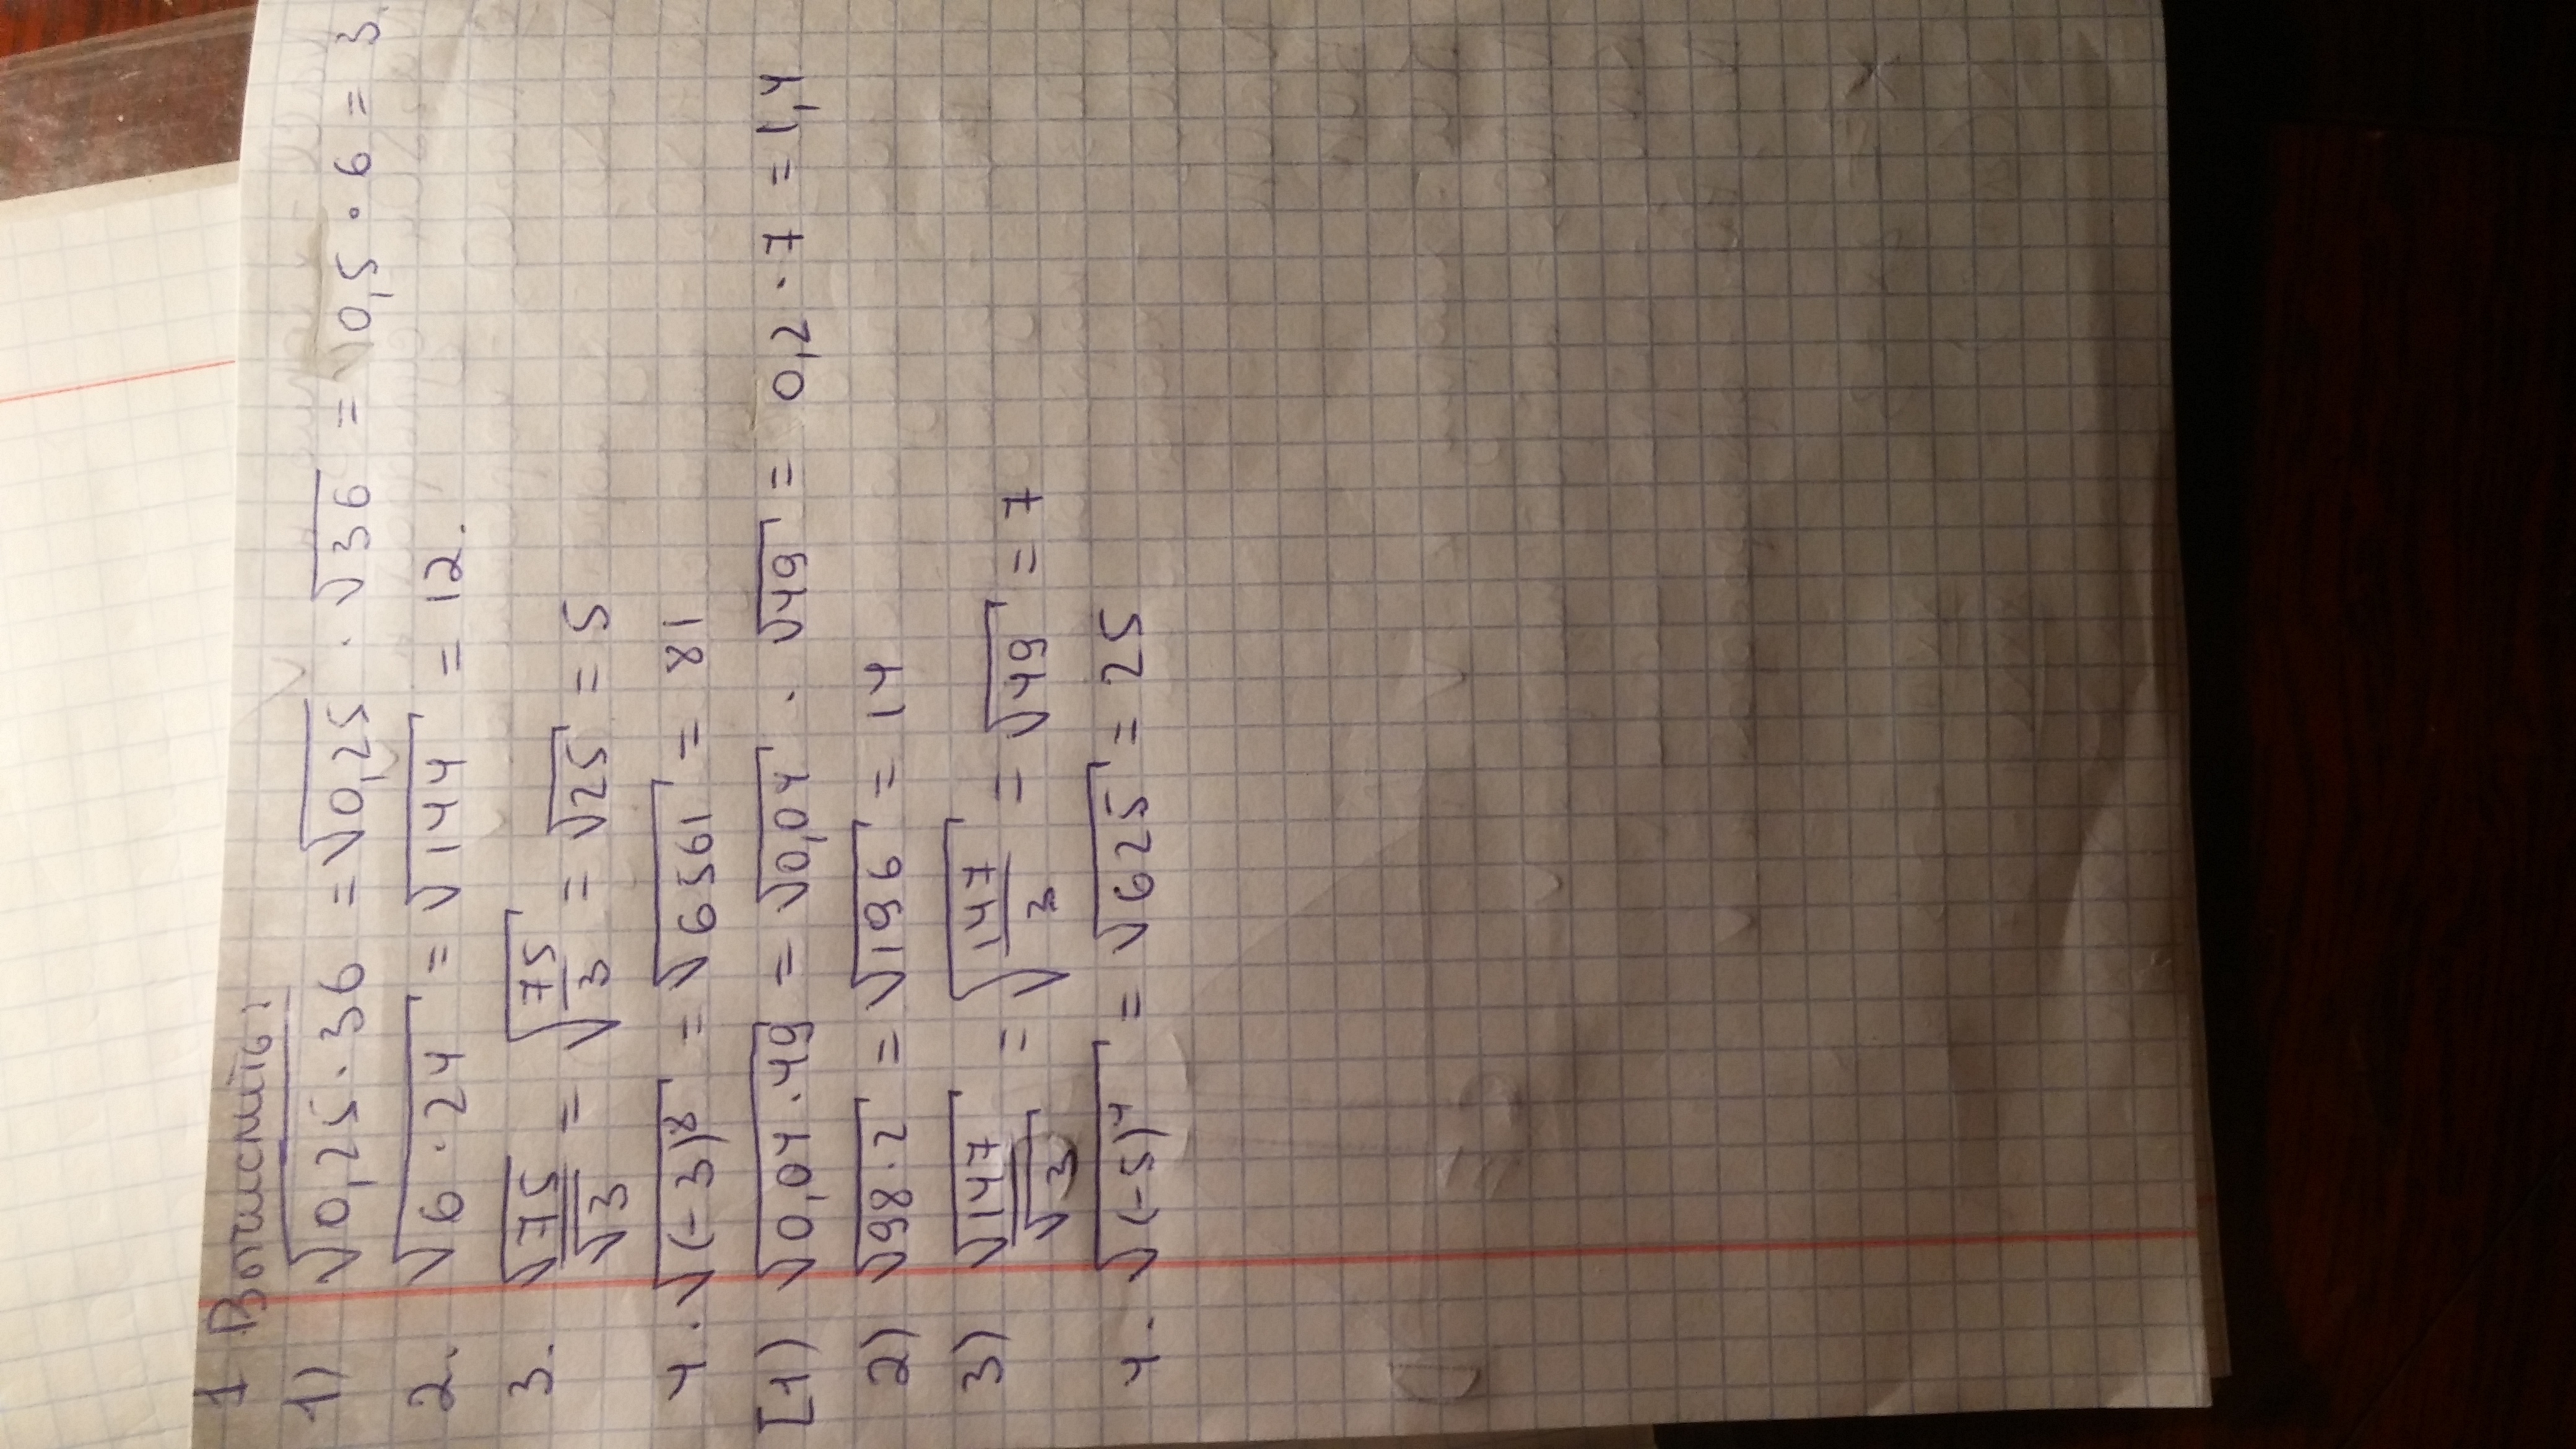 1 Вычислить:
1) √0,25·36 = √0,25 · √36 = √0,5 · 6 = 3.
2. √6·24 = √144 = 12.
3. √75/√3 = √(75/3) = √25 = 5
4. √(-3)⁸ = √6561 = 81
[1) √0,04·49 = √0,04 · √49 = 0,2 · 7 = 1,4
2) √98·2 = √196 = 14
3) √147/√3 = √(147/3) = √49 = 7
4. √(-5)⁴ = √625 = 25